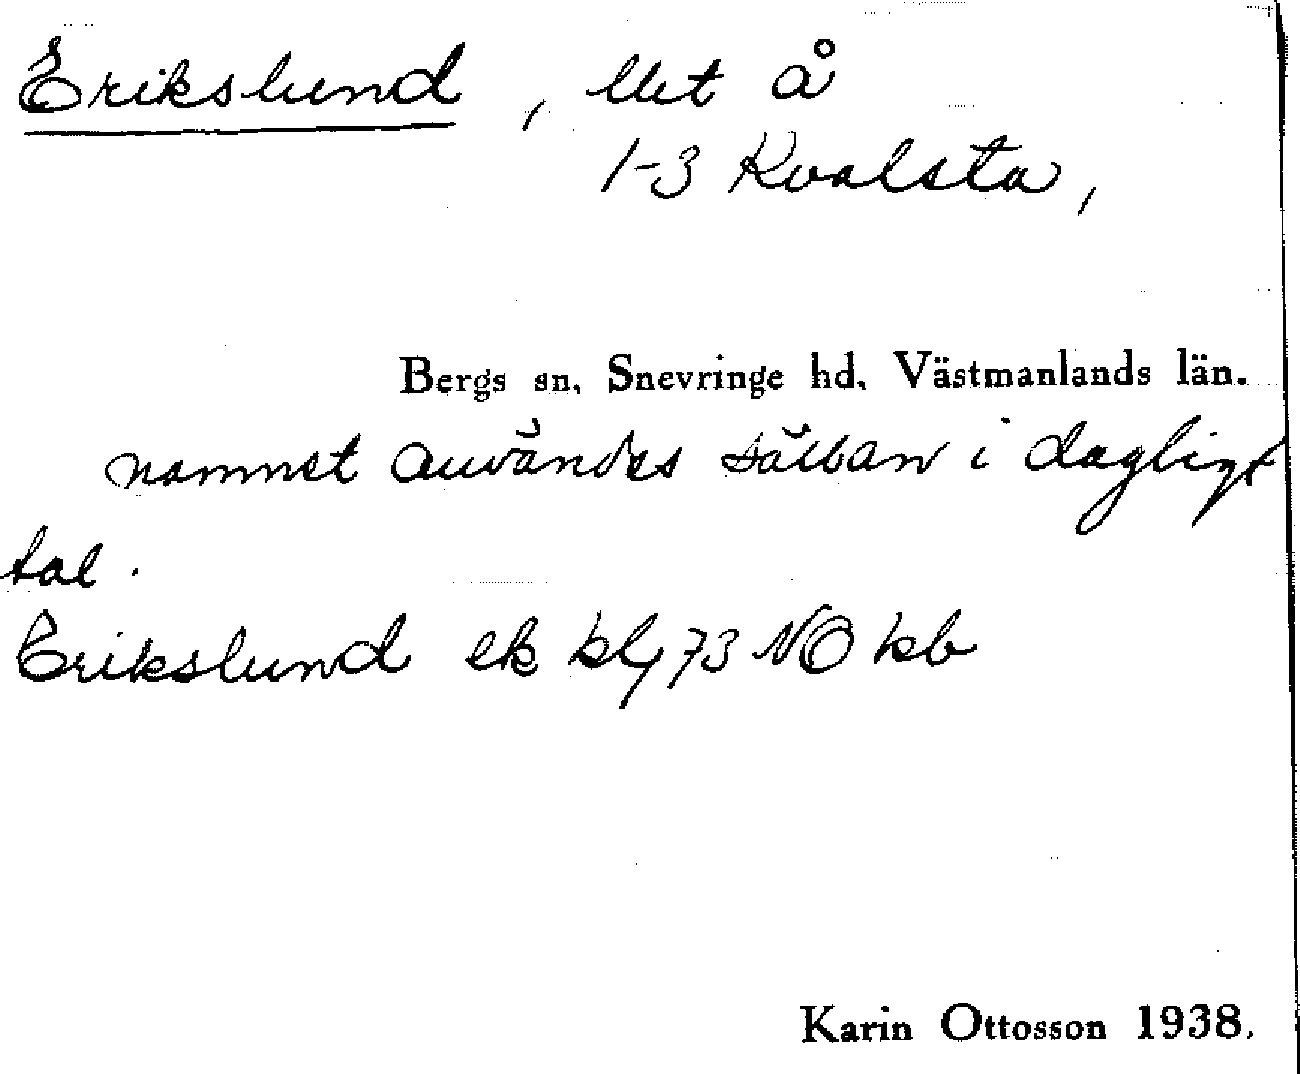 Erikslund, lht å
1-3 Kvalsta,
Bergs sn, Snevringe hd, Västmanlands län.
namnet användes sällan i dagligt
tal.
Erikslund ek bl 73 NO kb
Karin Ottosson 1938.